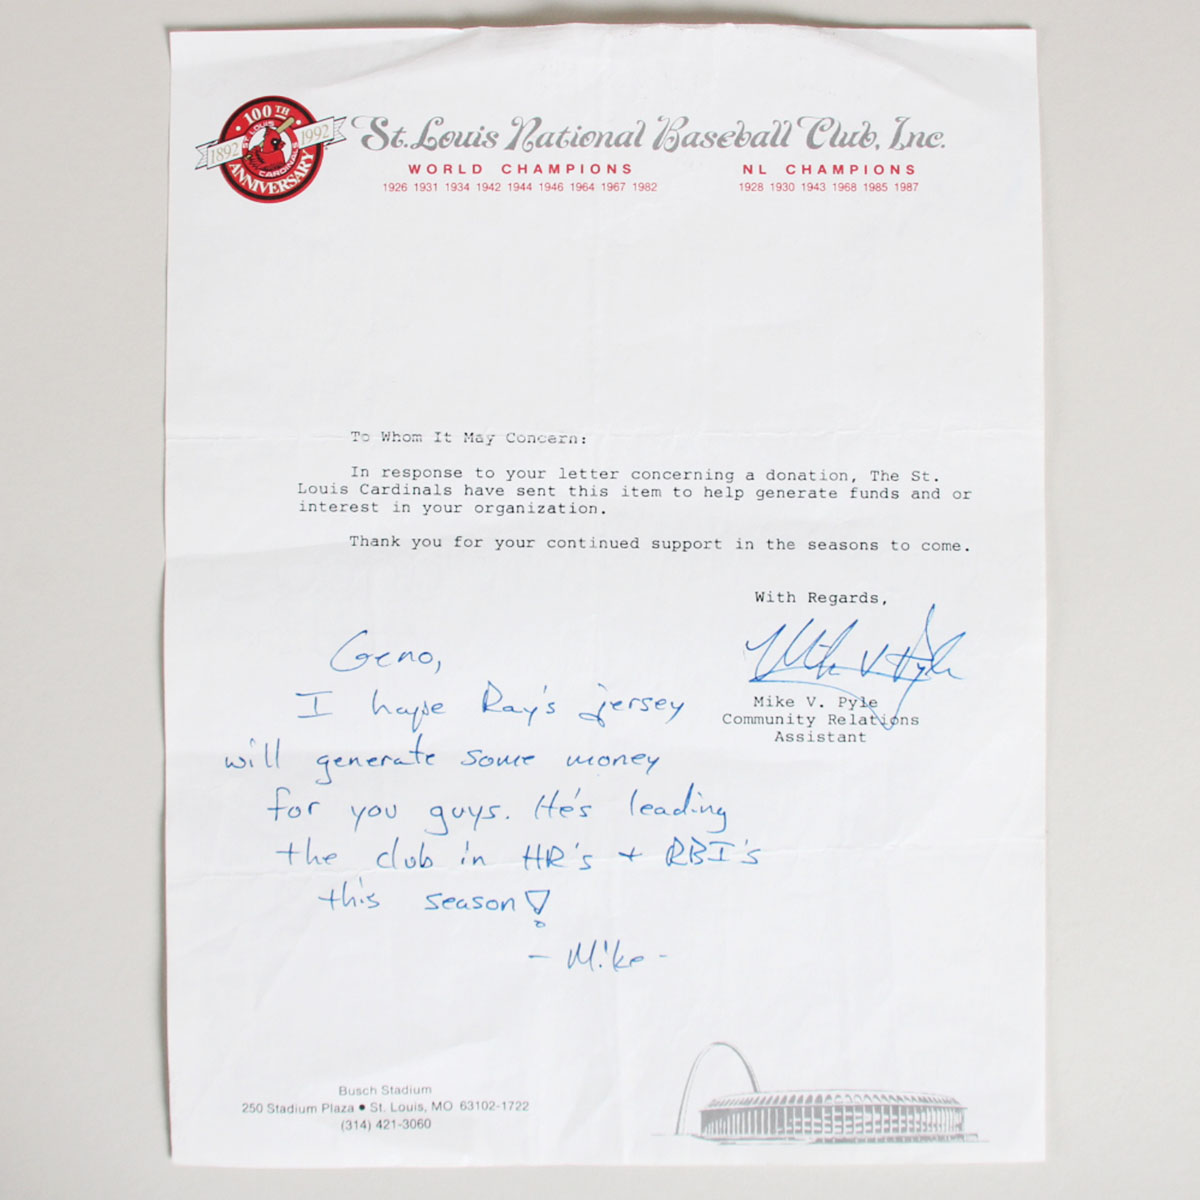 100TH
ST. LOUIS
CARDINALS
1892 1992
ANNIVERSARY
St. Louis National Baseball Club, Inc.
WORLD CHAMPIONS
1926 1931 1934 1942 1944 1946 1964 1967 1982
NL CHAMPIONS
1928 1930 1943 1968 1985 1987
To Whom It May Concern:
In response to your letter concerning a donation, The St.
Louis Cardinals have sent this item to help generate funds and or
interest in your organization.
Thank you for your continued support in the seasons to come.
With Regards,
Mike V Pyle
Mike V. Pyle
Community Relations
Assistant
Geno,
I hope Ray's jersey
will generate some money
for you guys. He's leading
the club in HR's + RBI's
this season!
- Mike -
Busch Stadium
250 Stadium Plaza • St. Louis, MO 63102-1722
(314) 421-3060